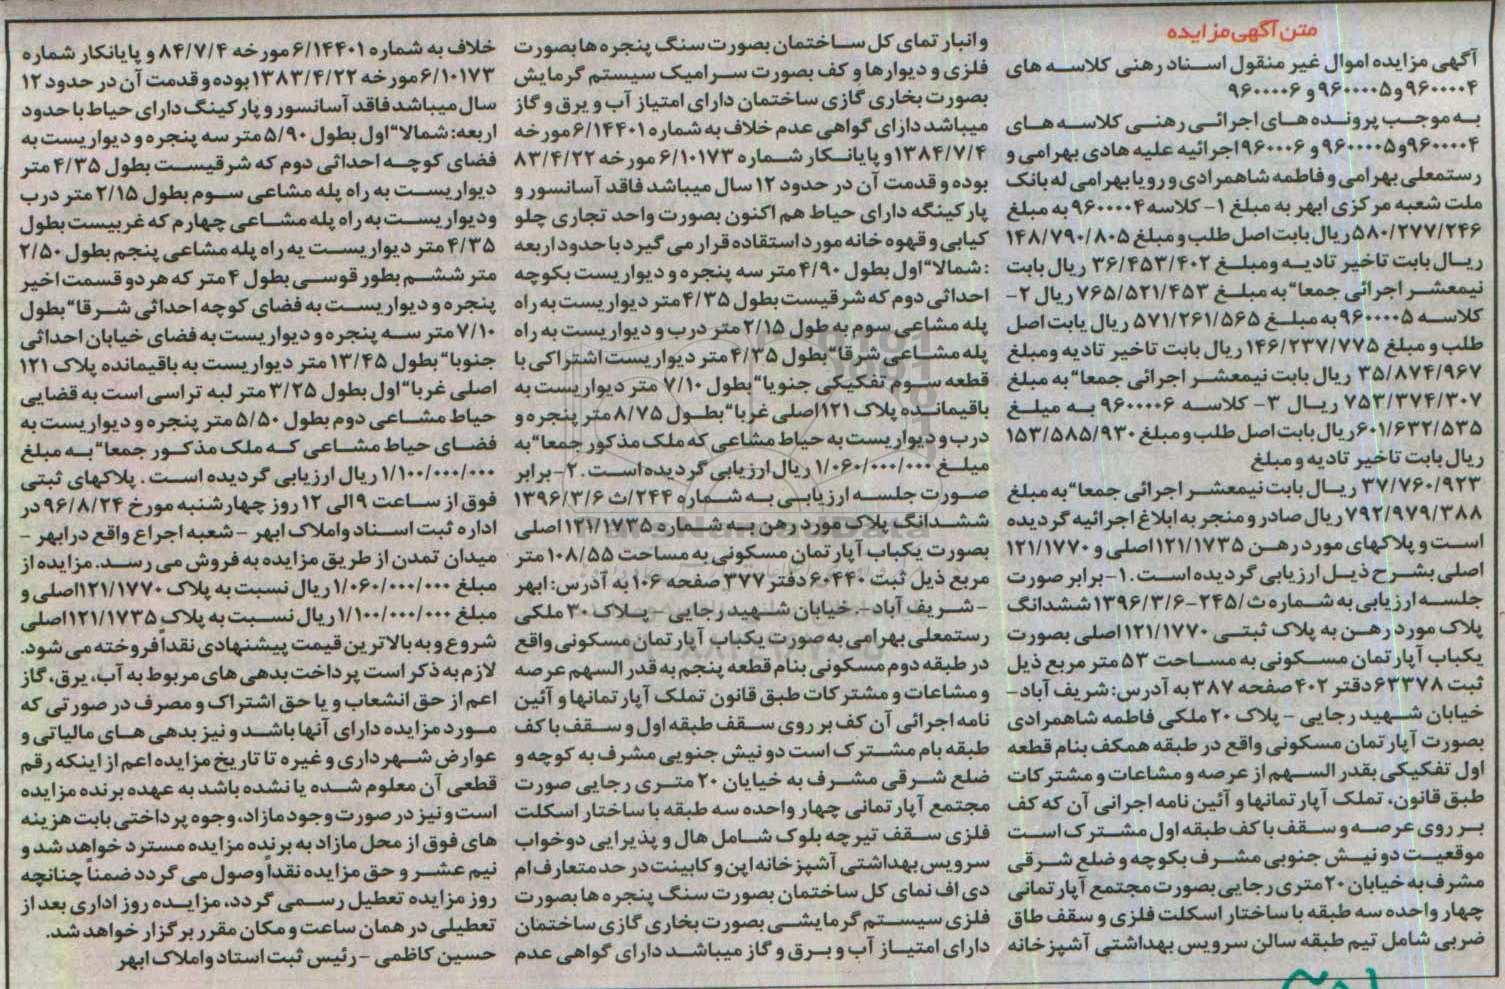 متن آگهی مزایده
آگهی مزایده اموال غیر منقول اسناد رهنی کلاسه های
۹۶۰۰۰۰۴و۹۶۰۰۰۰۵ و ۹۶۰۰۰۰۶
به موجب پرونده های اجرائی رهنی کلاسه های
۹۶۰۰۰۰۴و۹۶۰۰۰۰۵ و ۹۶۰۰۰۶اجرائیه علیه هادی بهرامی و
رستمعلی بهرامی و فاطمه شاهمرادی و رویا بهرامی له بانک
ملت شعبه مرکزی ابهر به مبلغ ۱- کلاسه ۹۶۰۰۰۰۴ به مبلغ
۵۸۰/۲۷۷/۲۴۶ریال بابت اصل طلب و مبلغ ۱۴۸/۷۹۰/۸۰۵
ریال بابت تاخیر تادیه ومبلغ ۳۶/۴۵۳/۴۰۲ ریال بابت
نیمعشر اجرائی جمعا" به مبلغ ۷۶۵/۵۲۱/۴۵۳ریال ۲-
کلاسه ۹۶۰۰۰۰۵ به مبلغ ۵۷۱/۲۶۱/۵۶۵ ریال یابت اصل
طلب و مبلغ ۱۴۶/۲۳۷/۷۷۵ریال بابت تاخیر تادیه ومبلغ
۳۵/۸۷۴/۹۶۷ ریال بابت نیمعشر اجرائی جمعا" به مبلغ
۷۵۳/۳۷۴/۳۰۷ ریال ۳- کلاسه ۹۶۰۰۰۰۶ به مبلغ
۶۰۱/۶۳۲/۵۳۵ریال بابت اصل طلب و مبلغ ۱۵۳/۵۸۵/۹۳۰
ریال بابت تاخیر تادیه و مبلغ
۳۷/۷۶۰/۹۲۳ ریال بابت نیمعشر اجرائی جمعا" به مبلغ
۷۹۲/۹۷۹/۳۸۸ریال صادر و منجر به ابلاغ اجرائیه گردیده
است و پلاکهای مورد رهن ۱۲۱/۱۷۳۵اصلی و ۱۲۱/۱۷۷۰
اصلی بشرح ذیل ارزیابی گردیده است .۱- برابر صورت
جلسه ارزیابی به شماره ث/۲۴۵-۱۳۹۶/۳/۶ ششدانگ
پلاک مورد رهن به پلاک ثبتی ۱۲۱/۱۷۷۰اصلی بصورت
یکباب آپارتمان مسکونی به مساحت ۵۳ متر مربع ذیل
ثبت ۶۳۳۷۸دفتر ۴۰۲ صفحه ۳۸۷ به آدرس: شریف آباد-
خیابان شهید رجایی - پلاک ۲۰ ملکی فاطمه شاهمرادی
بصورت آپارتمان مسکونی واقع در طبقه همکف بنام قطعه
اول تفکیکی بقدر السهم از عرصه و مشاعات و مشترکات
طبق قانون، تملک آپارتمانها و آئین نامه اجرائی آن که کف
بر روی عرصه و سقف با کف طبقه اول مشترک است
موقعیت دو نبش جنوبی مشرف بکوچه و ضلع شرقی
مشرف به خیابان ۲۰ متری رجایی بصورت مجتمع آپارتمانی
چهار واحده سه طبقه با ساختار اسکلت فلزی و سقف طاق
ضربی شامل تیم طبقه سالن سرویس بهداشتی آشپزخانه
و انبار تمای کل ساختمان بصورت سنگ پنجره ها بصورت
فلزی و دیوارها و کف بصورت سرامیک سیستم گرمایش
بصورت بخاری گازی ساختمان دارای امتیاز آب و یرق و گاز
میباشد دارای گواهی عدم خلاف به شماره ۶/۱۴۴۰۱مورخه
۱۳۸۴/۷/۴ و پایانکار شماره ۶/۱۰۱۷۳ مورخه ۸۳/۴/۲۲
بوده و قدمت آن در حدود ۱۲ سال میباشد فاقد آسانسور و
پارکینگه دارای حیاط هم اکنون بصورت واحد تجاری چلو
کیابی و قهوه خانه مورد استفاده قرار می گیرد با حدود اربعه
:شمالا" اول بطول ۴/۹۰ متر سه پنجره و دیواریست بکوچه
احداثی دوم که شرقیست بطول ۴/۳۵ متر دیواریست به راه
پله مشاعی سوم به طول ۲/۱۵ متر درب و دیواریست به راه
پله مشاعی شرقا" بطول ۴/۳۵ متر دیواریست اشتراکی با
قطعه سوم تفکیکی جنوبا" بطول ۷/۱۰ متر دیواریست به
باقیمانده پلاک ۱۲۱اصلی غربا" بطول ۸/۷۵ متر پنجره و
درب و دیواریست به حیاط مشاعی که ملک مذکور جمعا" به
مبلغ ۱/۰۶۰/۰۰۰/۰۰۰ ریال ارزیابی گردیده است . ۲- برابر
صورت جلسه ارزیابی به شماره ۲۴۴/ث ۱۳۹۶/۳/۶
ششدانگ پلاک مورد رهن به شماره ۱۲۱/۱۷۳۵اصلی
بصورت یکباب آپارتمان مسکونی به مساحت ۱۰۸/۵۵ متر
مربع ذیل ثبت ۶۰۴۴۰دفتر ۳۷۷ صفحه ۱۰۶ به آدرس: ابهر
- شریف آباد-. خیابان شهید رجایی - پلاک ۳۰ ملکی
رستمعلی بهرامی به صورت یکباب آپارتمان مسکونی واقع
در طبقه دوم مسکونی بنام قطعه پنجم به قدر السهم عرصه
و مشاعات و مشترکات طبق قانون تملک آپارتمانها و آئین
نامه اجرائی آن کف بر روی سقف طبقه اول و سقف با کف
طبقه بام مشترک است دو نبش جنوبی مشرف به کوچه و
ضلع شرقی مشرف به خیابان ۲۰ متری رجایی صورت
مجتمع آپارتمانی چهار واحده سه طبقه با ساختار اسکلت
فلزی سقف تیرچه بلوک شامل هال و پذیرایی دوخواب
سرویس بهداشتی آشپزخانه اپن و کابینت در حد متعارف ام
دی اف نمای کل ساختمان بصورت سنگ پنجره ها بصورت
فلزی سیستم گرمایشی بصورت بخاری گازی ساختمان
دارای امتیاز آب و برق و گاز میباشد دارای گواهی عدم
خلاف به شماره ۶/۱۴۴۰۱مورخه ۸۴/۷/۴ و پایانکار شماره
۶/۱۰۱۷۳مورخه ۱۳۸۳/۴/۲۲ بوده و قدمت آن در حدود ۱۲
سال میباشد فاقد آسانسور و پارکینگ دارای حیاط با حدود
اربعه: شمالا" اول بطول ۵/۹۰ متر سه پنجره و دیواریست به
فضای کوچه احداثی دوم که شرقیست بطول ۴/۳۵ متر
دیواریست به راه پله مشاعی سوم بطول ۲/۱۵ متر درب
ودیواریست به راه پله مشاعی چهارم که غربیست بطول
۴/۳۵ متر دیواریست یه راه پله مشاعی پنجم بطول ۲/۵۰
متر ششم بطور قوسی بطول ۴ متر که هر دو قسمت اخیر
پنجره و دیواریست به فضای کوچه احداثی شرقا" بطول
۷/۱۰ متر سه پنجره و دیواریست به فضای خیابان احداثی
جنوبا" بطول ۱۳/۴۵ متر دیواریست به باقیمانده پلاک ۱۲۱
اصلی غربا" اول بطول ۳/۲۵ متر لبه تراسی است به فضایی
حیاط مشاعی دوم بطول ۵/۵۰ متر پنجره و دیواریست به
فضای حیاط مشاعی که ملک مذکور جمعا" به مبلغ
۱/۱۰۰/۰۰۰/۰۰۰ ریال ارزیابی گردیده است . پلاکهای ثبتی
فوق از ساعت ۹الی ۱۲ روز چهارشنبه مورخ ۹۶/۸/۲۴ در
اداره ثبت اسناد واملاک ابهر - شعبه اجراع واقع در ابهر -
میدان تمدن از طریق مزایده به فروش می رسد. مزایده از
مبلغ ۱/۰۶۰/۰۰۰/۰۰۰ ریال نسبت به پلاک ۱۲۱/۱۷۷۰اصلی و
مبلغ ۱/۱۰۰/۰۰۰/۰۰۰ریال نسبت به پلاک ۱۲۱/۱۷۳۵اصلی
شروع و به بالاترین قیمت پیشنهادی نقداً فروخته می شود.
لازم به ذکر است پرداخت بدهی های مربوط به آب، یرق، گاز
اعم از حق انشعاب و یا حق اشتراک و مصرف در صورتی که
مورد مزایده دارای آنها باشد و نیز بدهی های مالیاتی و
عوارض شهرداری و غیره تا تاریخ مزایده اعم از اینکه رقم
قطعی آن معلوم شده یا نشده باشد به عهده برنده مزایده
است و نیز در صورت وجود مازاد، وجوه پرداختی بابت هزینه
های فوق از محل مازاد به برنده مزایده مسترد خواهد شد و
نیم عشر و حق مزایده نقداً وصول می گردد ضمناً چنانچه
روز مزایده تعطیل رسمی گردد، مزایده روز اداری بعد از
تعطیلی در همان ساعت و مکان مقرر برگزار خواهد شد.
حسین کاظمی - رئیس ثبت استاد واملاک ابهر